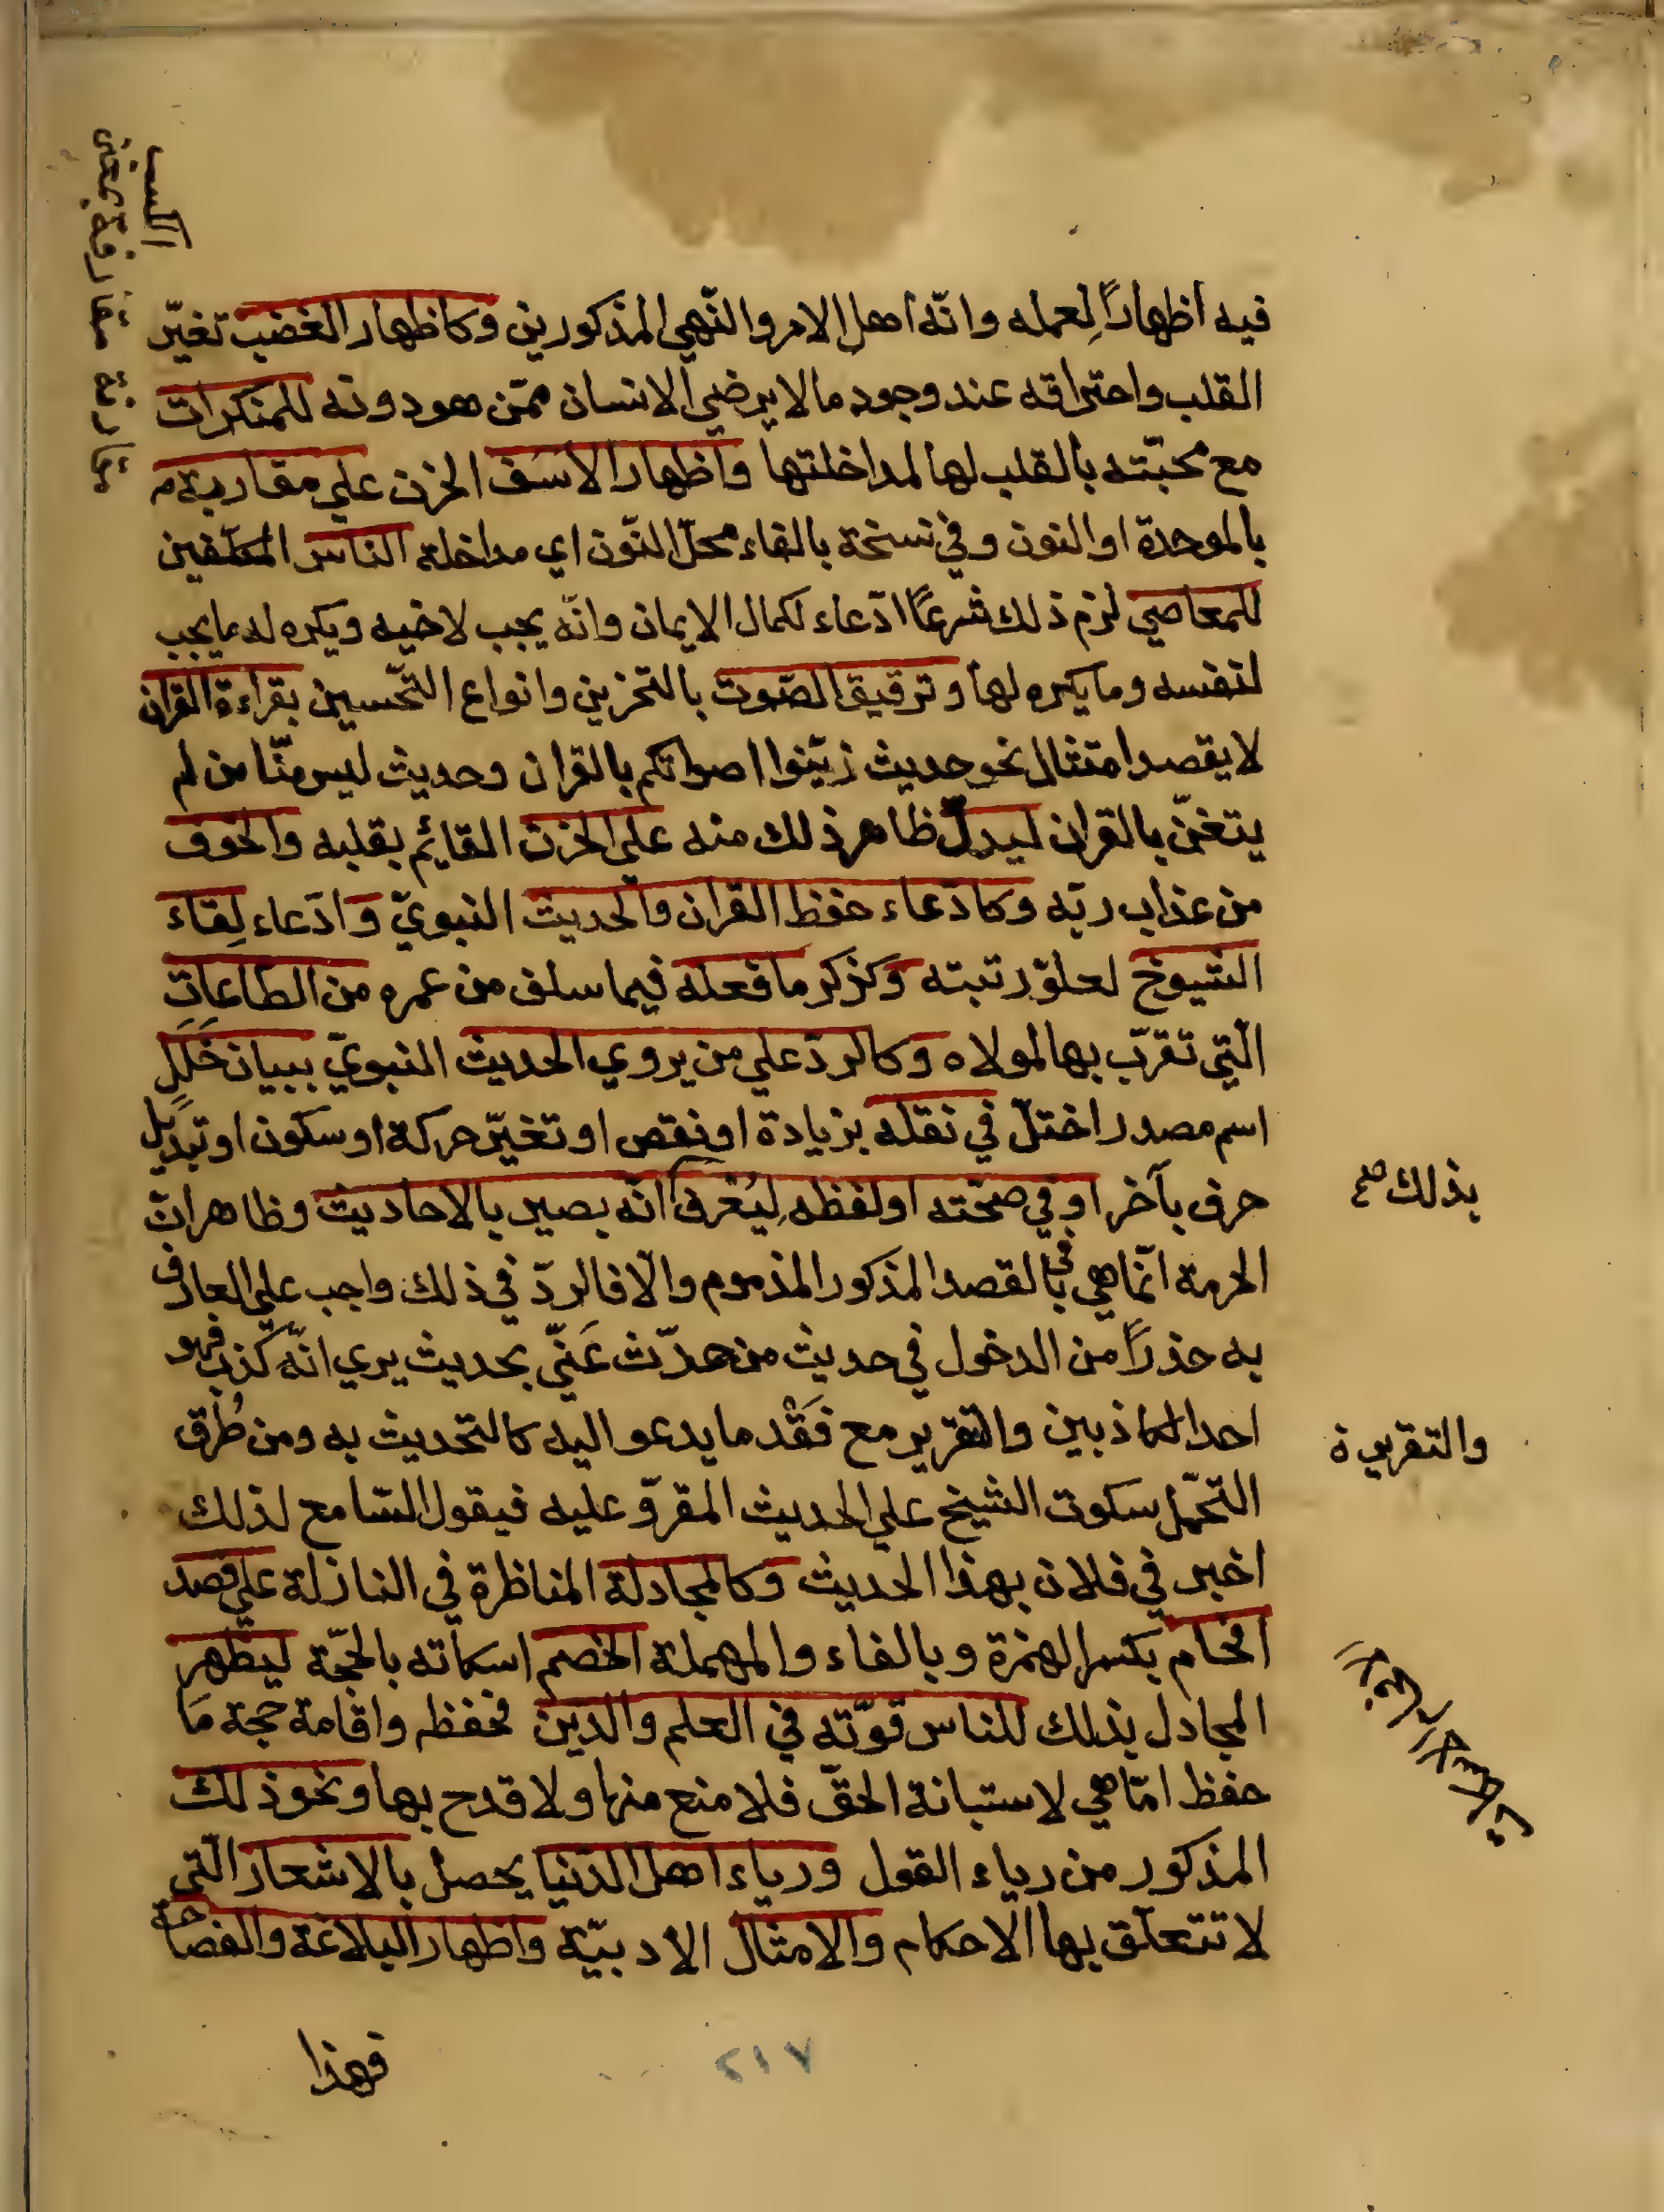 فيه اظهارًا لِعمله وانّه اهل الامر والنّهي المذكورين وكاظهار الغضب تغيّر
القلب واحتراقه عند وجود ما لا يرضي الانسان ممّن هو دونه للمنكرات
مع محبّته بالقلب لها لمداخلتها واظهار الاسَف الحزن علي مقاربة
بالموحدة او النون وفي نسخة بالفاء محلّ النّون اي مداخلة الناس المكلّفين
للمعاصي لزم ذلك شرعًا ادّعاء لكمال الايمان وانّه يجب لاخيه ويكره له ما يجب
لنفسه وما يكره لها وترقيق الصّوت بالتحزين وانواع التّحسين بقراءة القران
لا يقصد امتثال نحو حديث زيّنوا اصواتكم بالقران وحديث ليس منّا من لم
يتغنّ بالقران ليدلّ ظاهر ذلك منه علي الحزن القائم بقلبه والخوف
من عذاب ربّه وكادّعاء حفظ القران والحديث النبويّ وادّعاء لِقاء
الشيوخ لعلوّ رتبته وكذكر ما فعله فيما سلف من عمره من الطاعات
الّتي تقرّب بها لمولاه وكالردّ علي من يروي الحديث النبويّ ببيان خَلَلٍ
اسم مصدر اختلّ في نقله بزيادة او نقص او تغيّر حركة او سكون او تبديل
حرف بآخر او في صحّته او لفظه لِيُعْرف انّه بصير بالاحاديث وظاهر انّ
بذلك صح
الحرمة انّما هي في بالقصد المذكور المذموم والّا فالردّ في ذلك واجب علي العارف
به حذرًا من الدخول في حديث من حدّث عَنّي بحديث يري انّه كذب فهو
احد الكاذبين والتقرير مع فَقْد ما يدعو اليه كالتحديث به ومن طُرق
والتقريرة
التحمّل سكوت الشيخ علي الحديث المقروّ عليه فيقول السّامع لذلك
اخبر في فلان بهذا الحديث وكالمجادلة المناظرة في النازلة علي قصد
افحام بكسر الهمزة وبالفاء والمهملة الخصم اسكاته بالحجّة ليظهر
المجادل بذلك للناس قوّته في العلم والدّين فحفظه واقامة حجة مَا
حفظ امّا هي لاستبانة الحقّ فلا منع منها ولا قدح بها ونحو ذلك
المذكور من رياء القول ورياء اهل الدّنيا يحصل بالاشعار الّتي
لا تتعلّق بها الاحكام والامثال الادبيّة واظهار البلاغة والفصاحة
فهذا
٢١٧